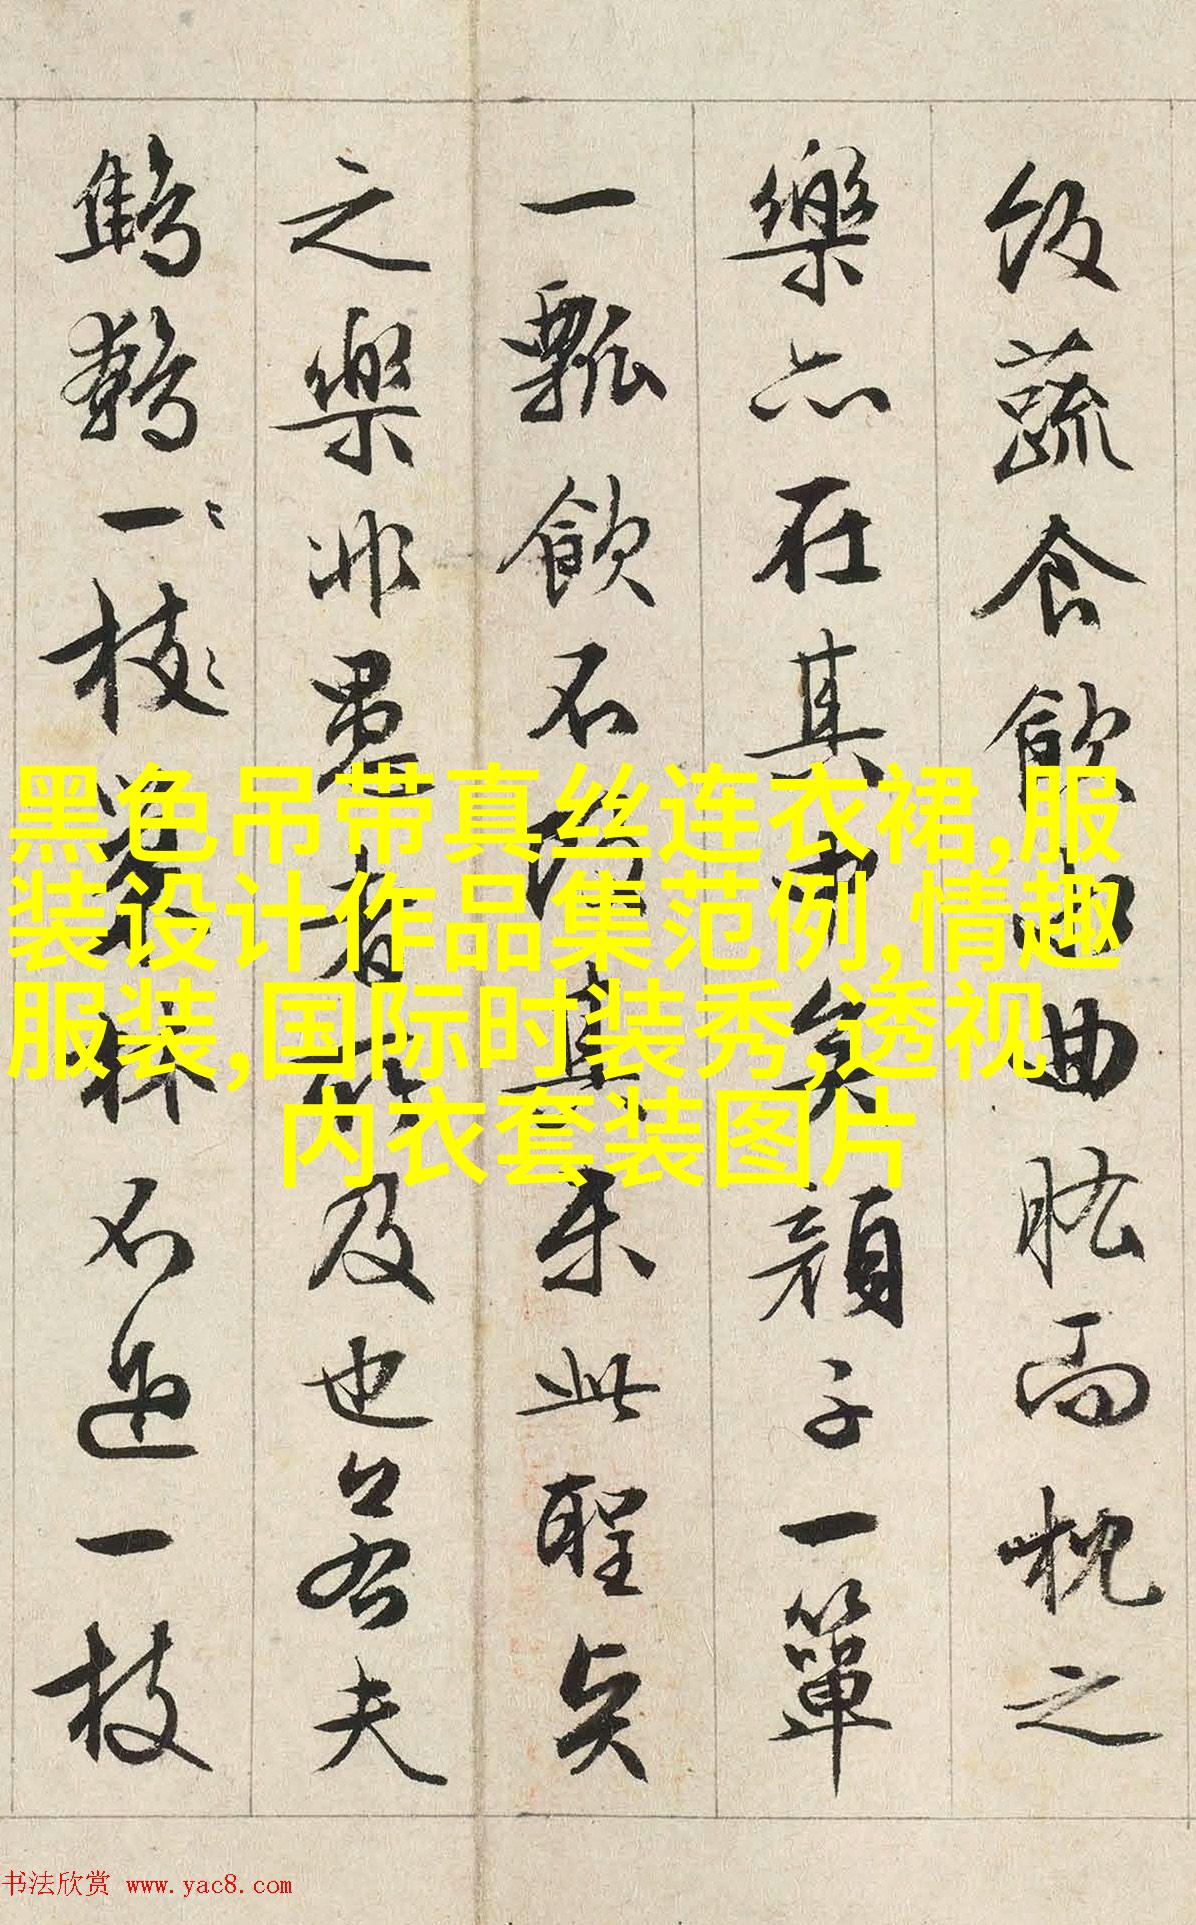 飯蔬食飲水曲肱而枕之
樂亦在其中矣顏子一簞
一瓢飲不改其樂此聖賢
之樂非愚者所及也若夫
鷦鷯一枝巢林不過一枝
黑色吊带真丝连衣裙,服
装设计作品集范例,情趣
服装,国际时装秀,透视
内衣套装图片
书法欣赏 www.yac8.com